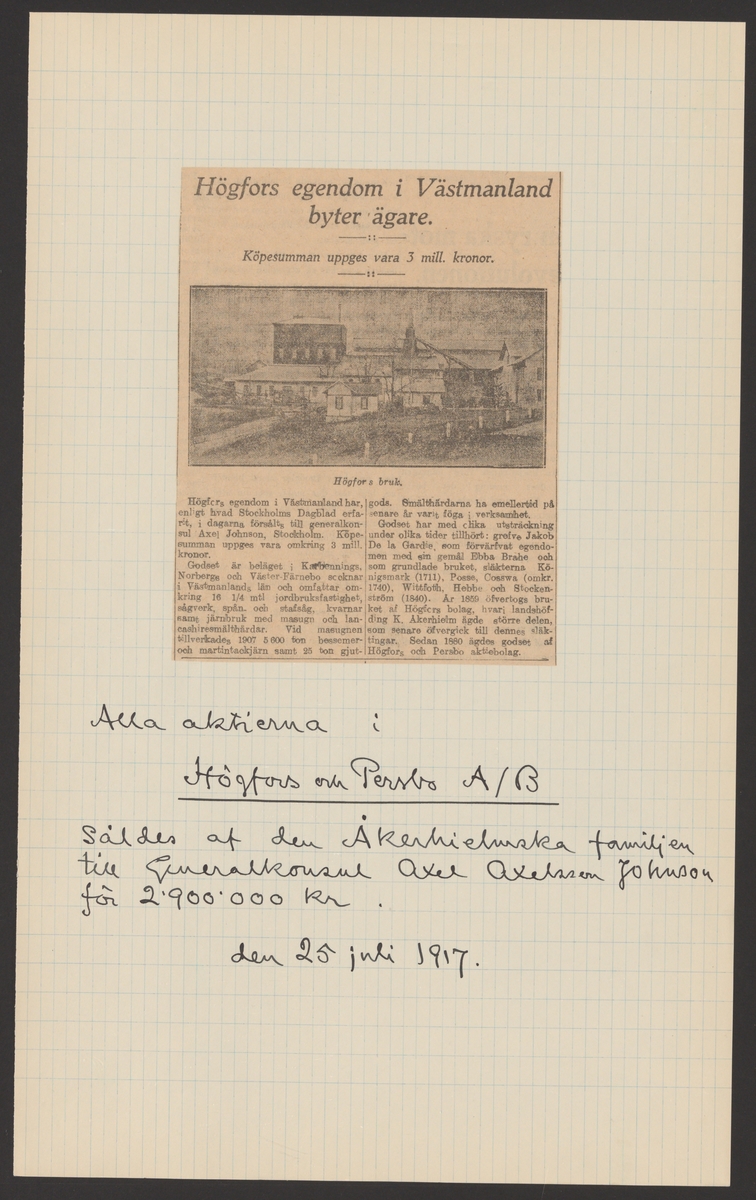 Högfors egendom i Västmanland
byter ägare.
Köpesumman uppges vara 3 mill. kronor.
Högfors bruk.
Högfors egendom i Västmanland har,
enligt hvad Stockholms Dagblad erfa-
rit, i dagarna försålts till generalkon-
sul Axel Johnson, Stockholm. Köpe-
summan uppges vara omkring 3 mill.
kronor.
Godset är beläget i Karbennings,
Norbergs och Väster-Färnebo socknar
i Västmanlands län och omfattar om-
kring 16 1/4 mtl jordbruksfastighet,
sågverk, spån- och stafsåg, kvarnar
samt järnbruk med masugn och lan-
cashiresmälthärdar. Vid masugnen
tillverkades 1907 5 600 ton bessemer-
och martintackjärn samt 25 ton gjut-
gods. Smälthärdarna ha emellertid på
senare år varit föga i verksamhet.
Godset har med olika utsträckning
under olika tider tillhört: grefve Jakob
De la Gardie, som förvärfvat egendo-
men med sin gemål Ebba Brahe och
som grundlade bruket, släkterna Kö-
nigsmark (1711), Posse, Coswa (omkr.
1740), Wittfoth, Hebbe och Stocken-
ström (1840). År 1859 öfvertogs bru-
ket af Högfors bolag, hvari landshöf-
ding K. Akerhielm ägde större delen,
som senare öfvergick till dennes släk-
tingar. Sedan 1880 ägdes godset af
Högfors och Persbo aktiebolag.
Alla aktierna i
Högfors och Persbo A/B
Såldes af den Åkerhielmska familjen
till Generalkonsul Axel Axelsson Johnson
för 2.900.000 Kr.
den 25 juli 1917.